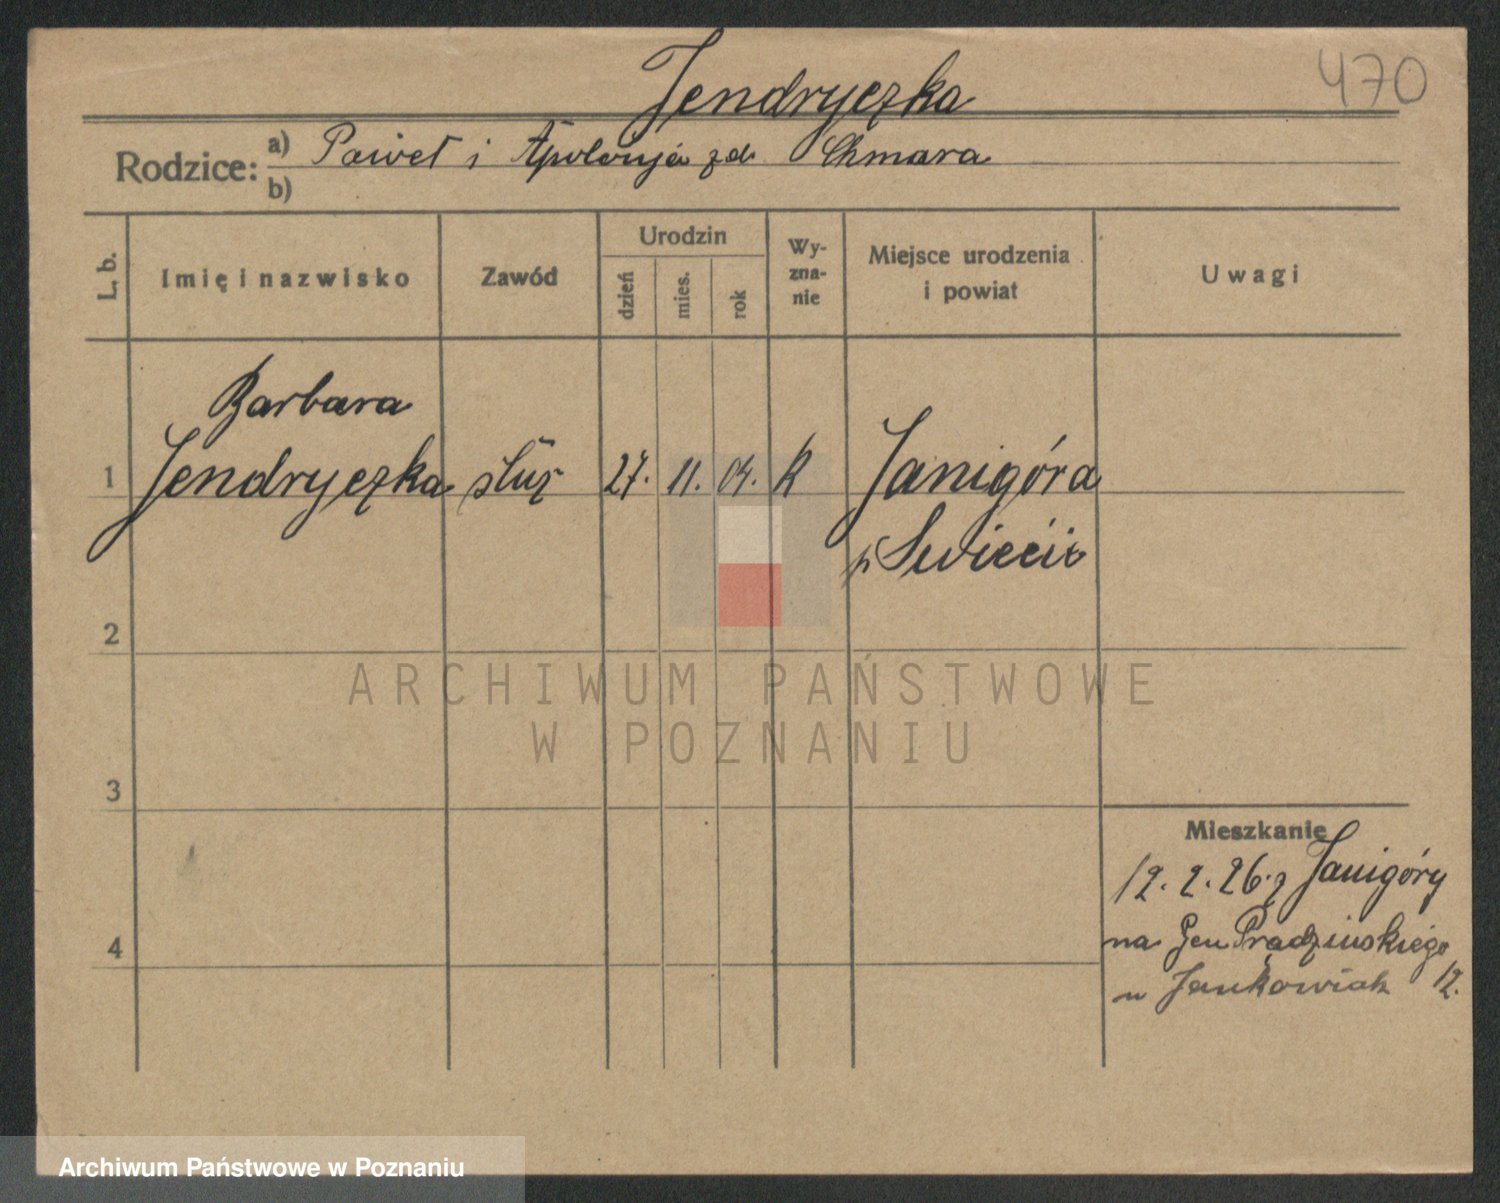 Jendryczka
470
Rodzice: a) Paweł i Apolonja zd. Chmara
b)
L. b.
Imię i nazwisko
Zawód
Urodzin
dzień
mies.
rok
Wy-
zna-
nie
Miejsce urodzenia
i powiat
Uwagi
Barbara
1 Jendryczka służ 27. 11. 04. K Janigóra
p Swiecie
2
ARCHIWUM PAŃSTWOWE
W POZNANIU
3
Mieszkanie
12. 2. 26. z Janigóry
4
na Gen Prądzińskiego
u Jankowiak 12.
Archiwum Państwowe w Poznaniu